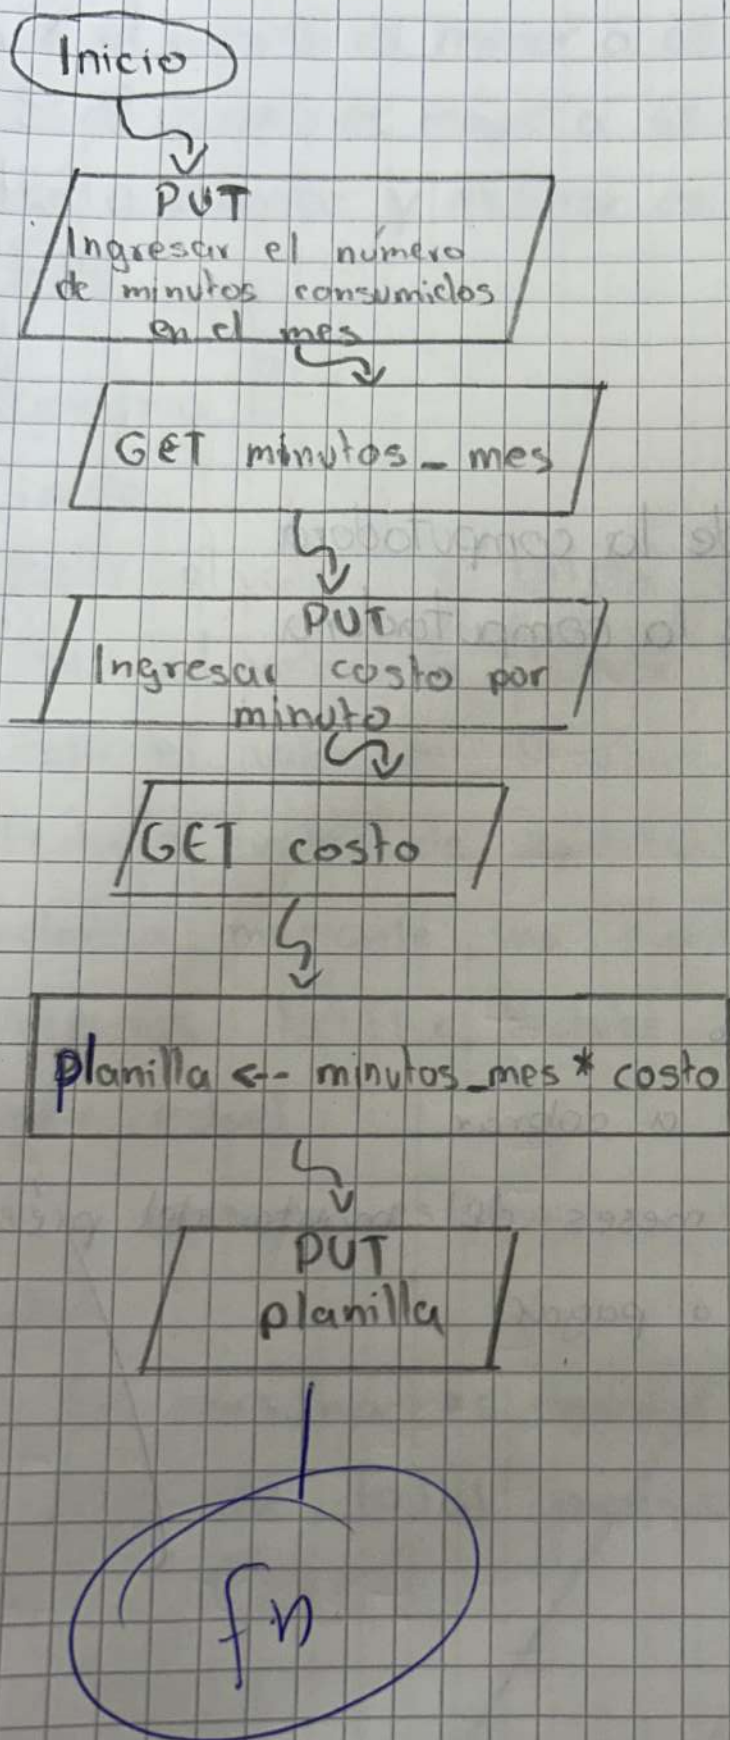 Inicio
PUT
Ingresar el número
de minutos consumidos
en el mes
GET minutos_mes
PUT
Ingresar costo por
minuto
GET costo
planilla <-- minutos_mes * costo
PUT
planilla
fin